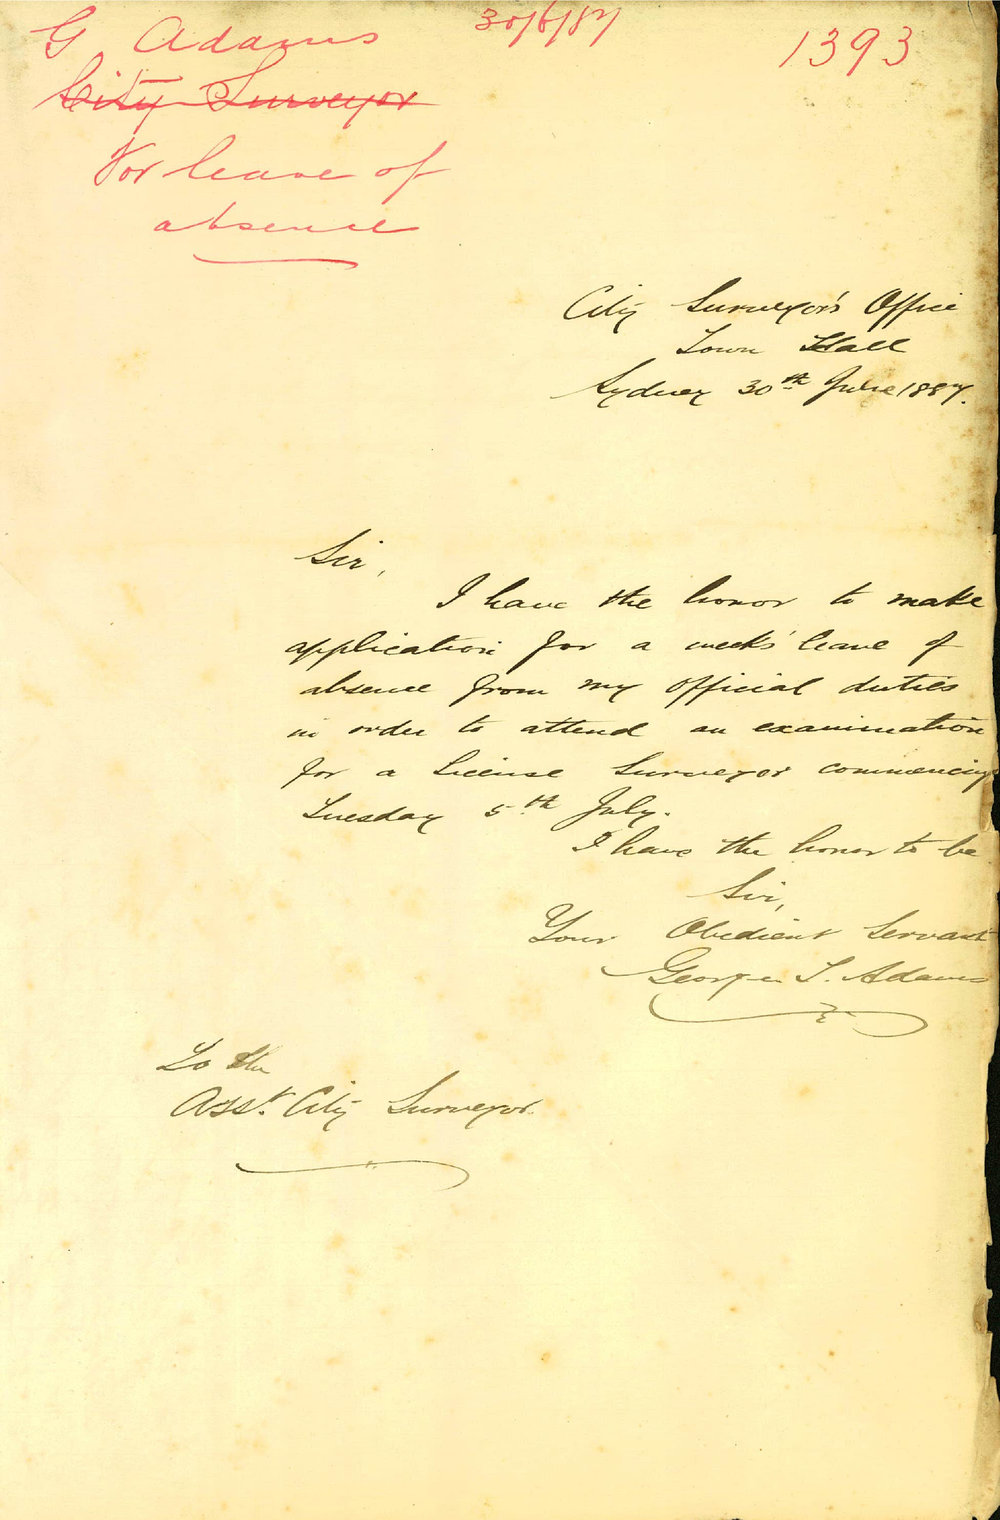 G Adams
30/6/87
1393
City Surveyor
For leave of
absence
City Surveyor's Office
Town Hall
Sydney 30th June 1887.
Sir,
I have the honor to make
application for a weeks' leave of
absence from my official duties
in order to attend an examination
for a License Surveyor commencing
Tuesday 5th July.
I have the honor to be
Sir,
Your Obedient Servant
George S. Adams
To the
Asst. City Surveyor.